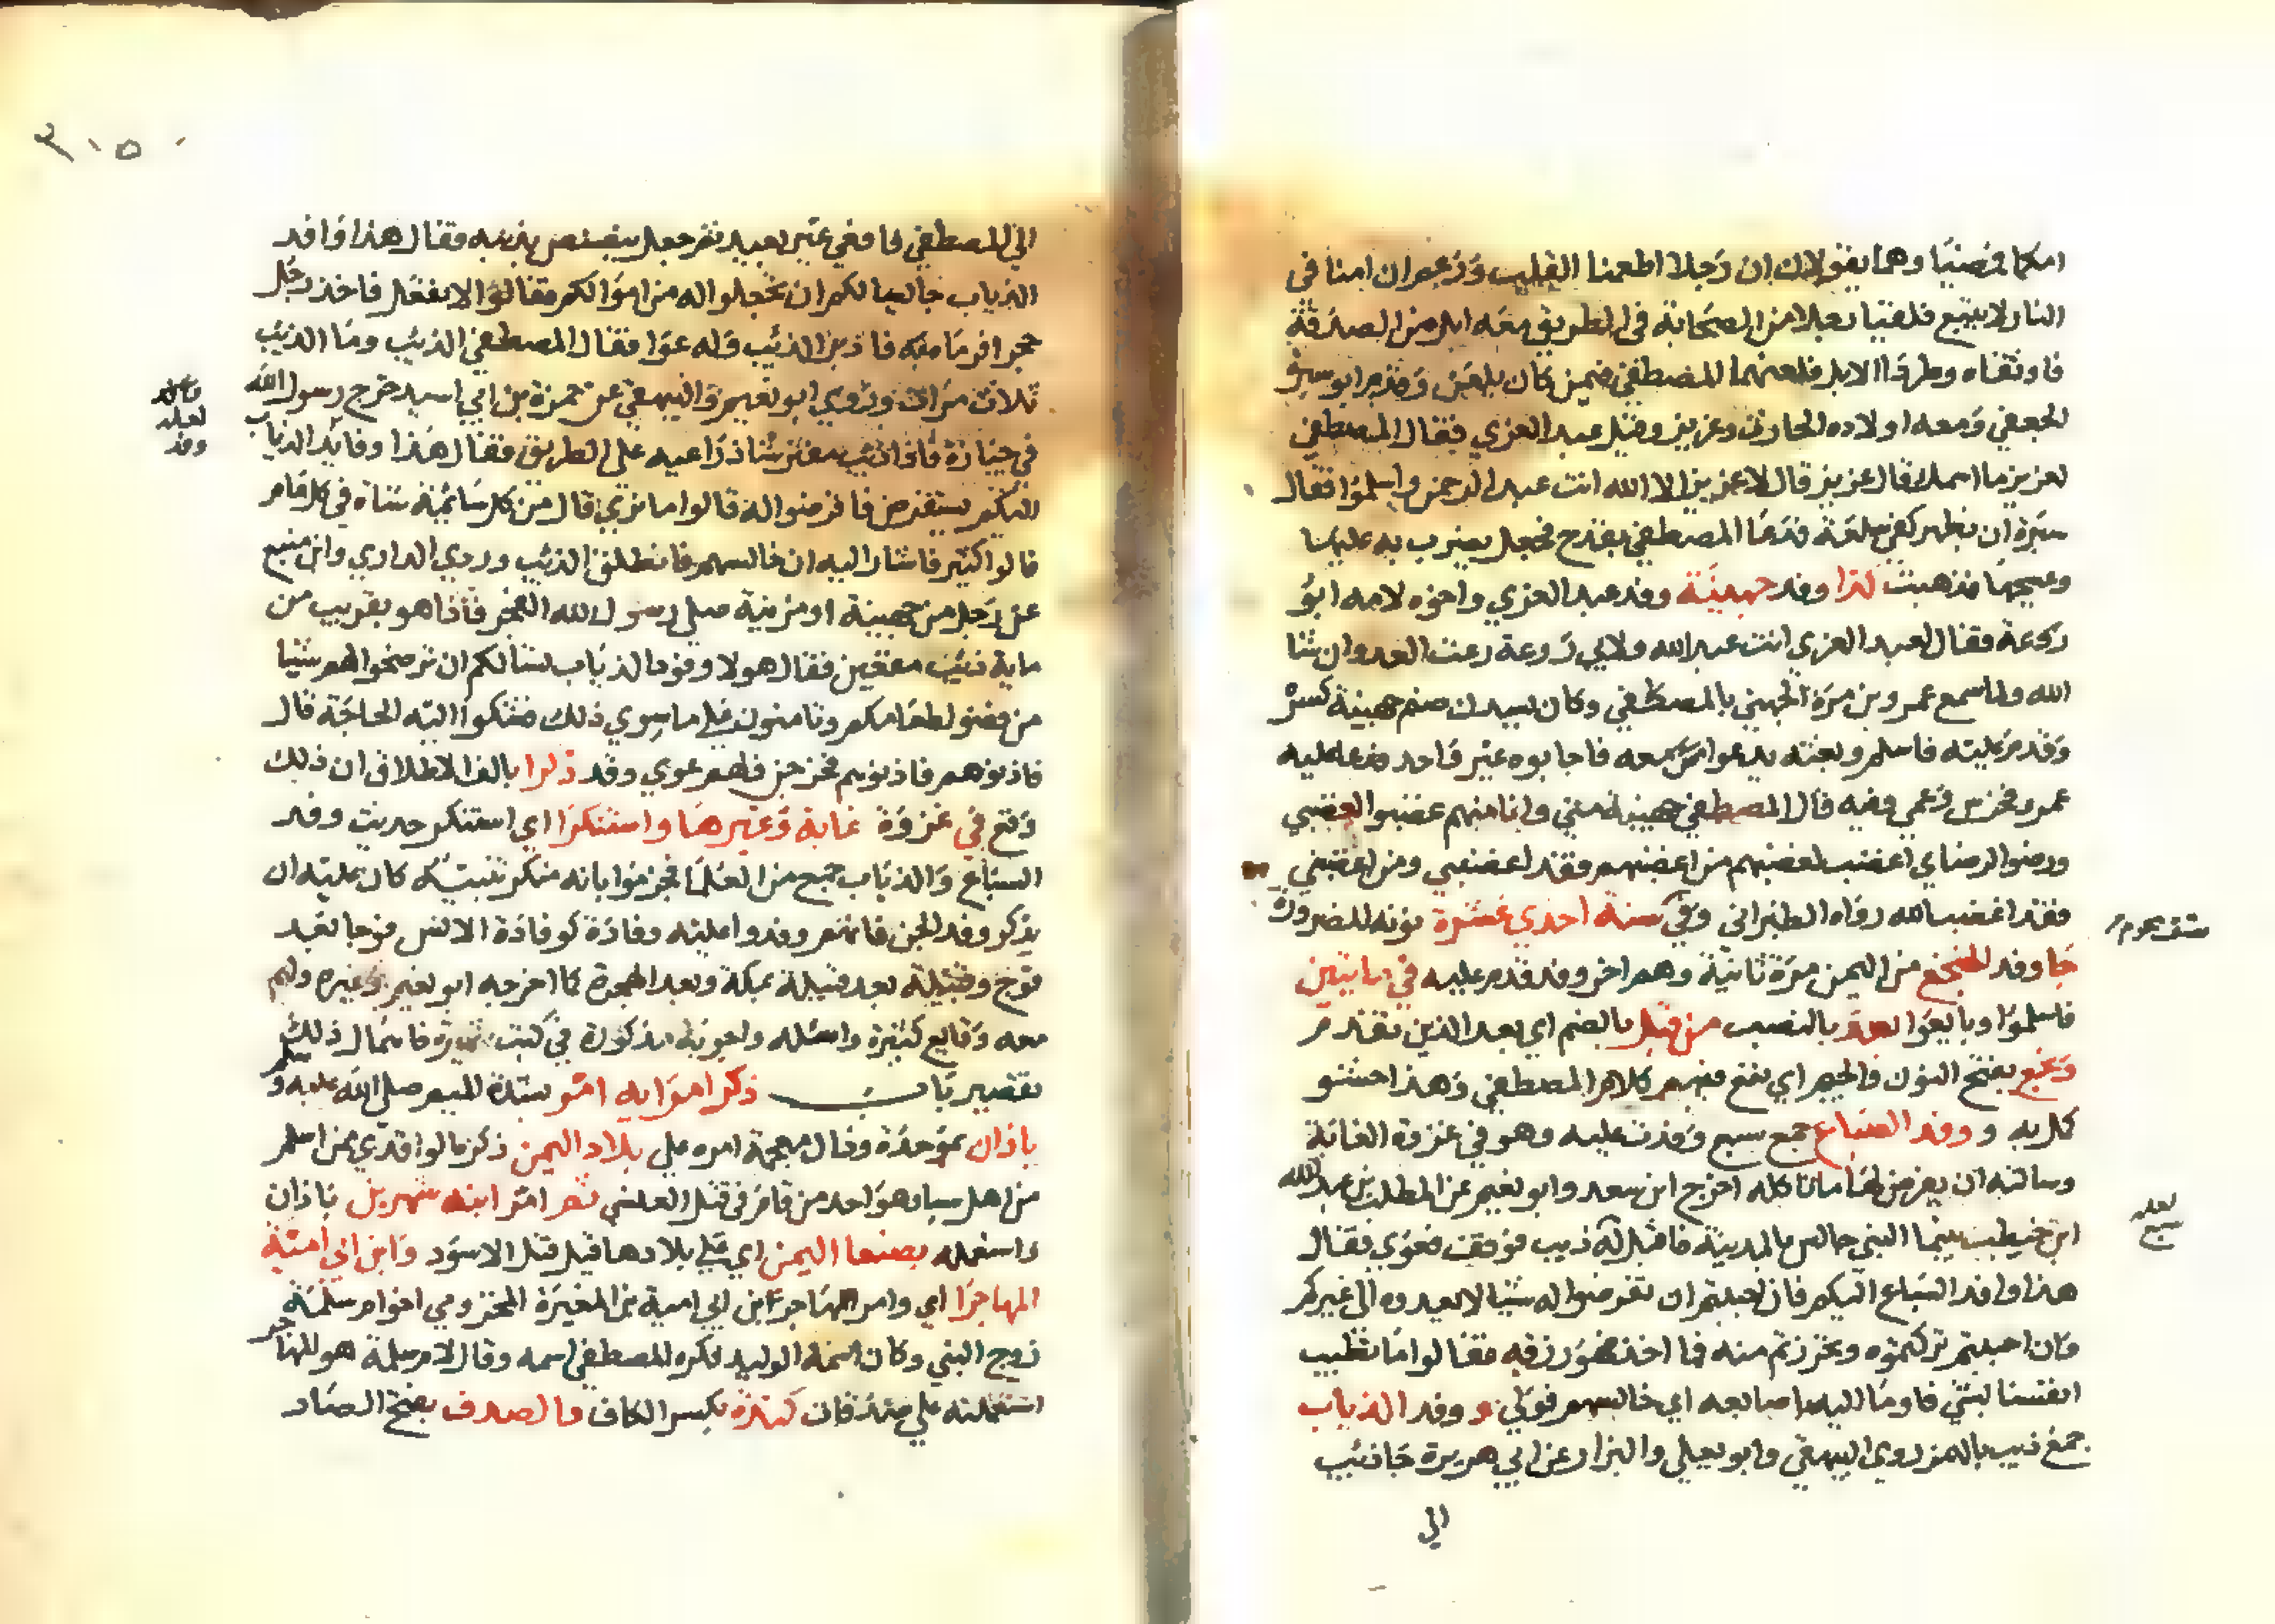 امكما فغضبا وهما يقولان ان رجلا اطعمنا القليب وزعم ان امنا في
النار لا يتبع فلقيا رجلا من الصحابة في الطريق معه ابل من الصدقة
فاوثقاه وطردا الابل فلعنهما المصطفي فيمن كان يلعن وقدم ابو سبرة
الجعفي ومعه اولاده الحارث وعزيز وقيل عبد العزي فقال المصطفي
لعزيز ما اسمك قال عزيز قال لا عزيز الا الله انت عبد الرحمن واسلموا فقال
سبرة ان بظهر كفي سلعة فدعا المصطفي بقدح فجعل يضرب به عليها
ويمسحها فذهبت كذا وفد جهينة وفد عبد العزي واخوه لامه ابو
روعة فقال لعبد العزي انت عبد الله ولابي روعة رعت العدو ان شا
الله ولما سمع عمرو بن مرة الجهني بالمصطفي وكان لسدن صنم جهينة كسره
وقدم عليه فاسلم وبعثه يدعوا قومه فاجابوه غير واحد فدعا عليه
عمرو فخرس وعمي وفيه قال المصطفي جهينة مني وانا منهم غضبوا لغضبي
ورضوا لرضاي اغضب لغضبهم من اغضبهم فقد اغضبني ومن اغضبني
فقد اغضب الله رواه الطبراني وفي سنة احدي عشرة نونه للضرورة
جا وفد النخع من اليمن مرة ثانية وهم اخر وفد قدم عليه في مايتين
فاسلموا وبايعوا بعد بالنصب من قبل بالضم اي بعد الذين تقدم
ونخع بفتح النون والجيم اي نفع فيهم كلام المصطفي وهذا حشو
كمل به و ووفد السباع جمع سبع وفدت عليه وهو في غزوة الغابة
وسالته ان يفرض لها ما تاكله اخرج ابن سعد وابو نعيم عن المطلب بن عبد الله
ابن حنطب بينما النبي جالس بالمدينة فاقبل ذيب فوقف فعوي فقال
هذا وافد السباع اليكم فان احببتم ان تفرضوا له شيئا لا يعدوه الي غيره
وان احببتم تركتموه وتحرزتم منه فما اخذ فهو رزقه فقالوا ما تطيب
انفسنا بشي فاوما اليه باصابعه اي خالسهم فولي و وفد الذياب
جمع ذيب بالهمز روي البيهقي وابو يعلي والبزار عن ابي هريرة جا ذئب
الي
لعله
سبع
٣٠٥
الي المصطفي فاقعي غير بعيد ثم جعل يبصبص بذنبه فقال هذا وافد
الذياب جا يسالكم ان تجعلوا له من اموالكم فقالوا لا نفعل فاخذ رجل
حجرا فرماه به فادبر الذئب وله عوا فقال المصطفي الذئب وما الذئب
ثلاث مرات وروي ابو نعيم والبيهقي عن حمزة بن ابي اسيد خرج رسول الله
في جنازة فاذا ذئب مفترشا ذراعيه علي الطريق فقال هذا وفايد الذياب
اليكم يستفرض فافرضوا له قالوا ما نري قال من كل سائمة شاة في كل عام
قالوا كثير فاشار اليه ان خالسهم فانطلق الذئب وروي الداري وابن منيع
عن رجل من جهينة او مزينة صلي رسول الله الفجر فاذا هو بقريب من
ماية ذئب مقعين فقال هولا وفود الذياب يسالكم ان ترضخوا لهم شيئا
من فضول طعامكم وتامنون علي ما سوي ذلك فشكوا اليه الحاجة قال
فاذنوهم فاذنوهم فخرجن ولهم عوي وقد ذكرا بالف الاطلاق ان ذلك
وقع في غزوة غابة وغيرها واستنكرا اي استنكر حديث وفد
السباع والذياب جمع من العلما فجزموا بانه منكر تنبيه كان عليه ان
يذكر وفد الجن فانهم وفدوا عليه وفادة كوفادة الانس فوجا بعد
فوج وقبيلة بعد قبيلة بمكة وبعد الهجرة كما اخرجه ابو نعيم وغيره ولهم
معه وقايع كثيرة واسئلة واجوبة مذكورة في كتب شهيرة فاهمال ذلك
تقصير باب ذكر امرايه امر ستة النبي صلي الله عليه وسلم
باذان بموحدة وذال معجمة امره علي بلاد اليمن ذكر مالوا قدي ممن اسلم
من اهل سبا وهو احد من قام في قتل العنسي ثم امر ابنه شهر بن باذان
واستعمله بصنعا اليمن اي علي بلادها قبل قتل الاسود وابن ابي امية
المهاجرا اي وامر المهاجر ابن ابي امية بن المغيرة المخزومي اخو ام سلمة
زوج النبي وكان اسمه الوليد فكره المصطفي اسمه وقال لام سلمة هو المهاجر
استعمله علي صدقات كندة بكسر الكاف والصدف بفتح الصاد
لعله
وفد